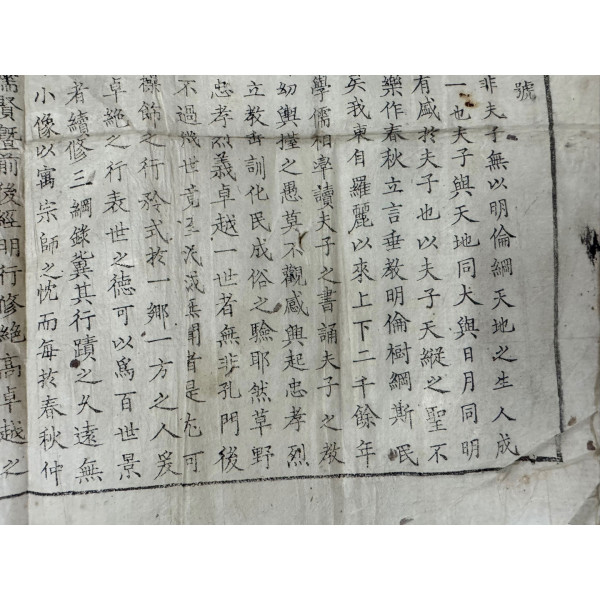 號
非夫子無以明倫綱天地之生人成
一也夫子與天地同大與日月同明
有盛於夫子也以夫子天縱之聖不
樂作春秋立言垂教明倫樹綱斯民
矣我東自羅麗以來上下二千餘年
學儒相率讀夫子之書誦夫子之教
幼輿儓之愚莫不觀感興起忠孝烈
立教垂訓化民成俗之驗耶然草野
忠孝烈義卓越一世者無非孔門後
不過幾世竟至泯滅無聞者是尤可
操飭之行矜式於一鄉一方之人爰
卓絶之行表世之德可以爲百世景
者續修三綱錄冀其行蹟之久遠無
小像以寓宗師之忱而每於春秋仲
儒賢曁前後經明行修絶高卓越之